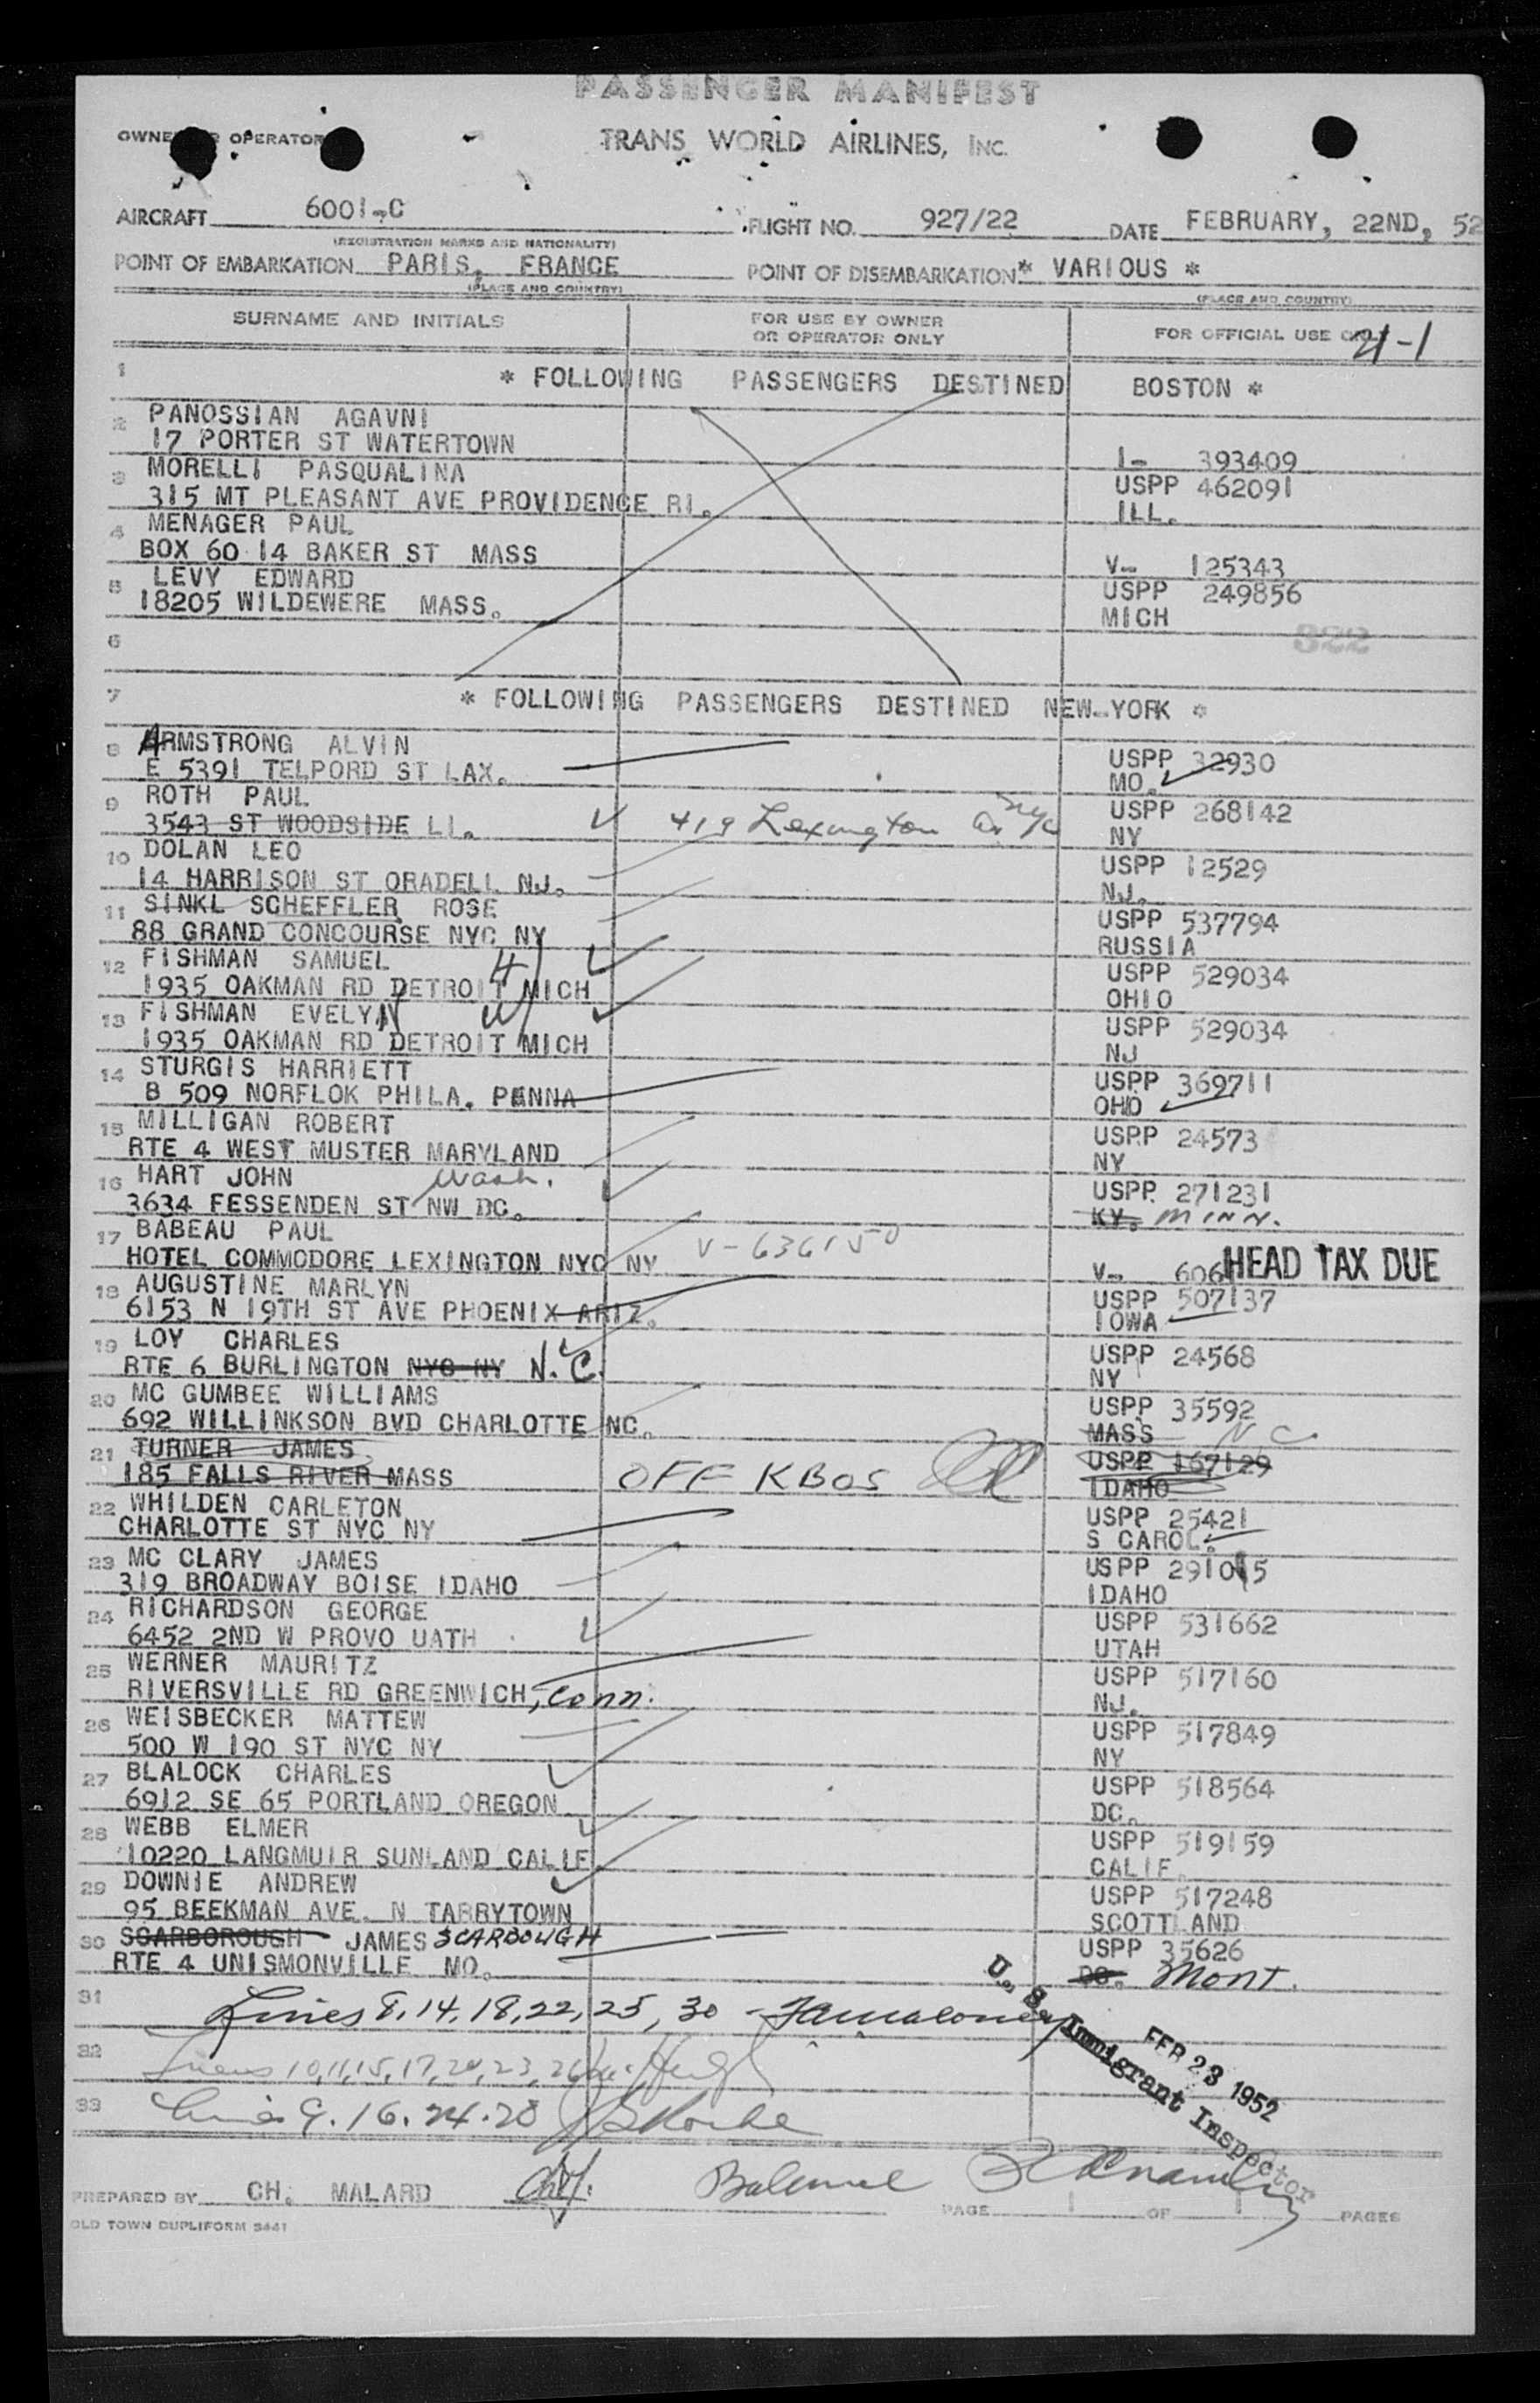 PASSENGER MANIFEST
OWNER OR OPERATOR TRANS WORLD AIRLINES, INC.
AIRCRAFT 6001-C FLIGHT NO. 927/22 DATE FEBRUARY, 22ND, 52
(REGISTRATION MARKS AND NATIONALITY)
POINT OF EMBARKATION PARIS, FRANCE POINT OF DISEMBARKATION * VARIOUS *
(PLACE AND COUNTRY) (PLACE AND COUNTRY)
SURNAME AND INITIALS FOR USE BY OWNER OR OPERATOR ONLY FOR OFFICIAL USE ONLY 21-1
1 * FOLLOWING PASSENGERS DESTINED BOSTON *
2 PANOSSIAN AGAVNI
17 PORTER ST WATERTOWN I- 393409
3 MORELLI PASQUALINA USPP 462091
315 MT PLEASANT AVE PROVIDENCE RI. ILL.
4 MENAGER PAUL
BOX 60 14 BAKER ST MASS V- 125343
5 LEVY EDWARD USPP 249856
18205 WILDEWERE MASS. MICH
6 322
7 * FOLLOWING PASSENGERS DESTINED NEW-YORK *
8 ARMSTRONG ALVIN USPP 32930
E 5391 TELPORD ST LAX. MO.
9 ROTH PAUL USPP 268142
3543 ST WOODSIDE LI. 419 Lexington Av NYC NY
10 DOLAN LEO USPP 12529
14 HARRISON ST ORADELL NJ. NJ.
11 SINKL SCHEFFLER ROSE USPP 537794
88 GRAND CONCOURSE NYC NY RUSSIA
12 FISHMAN SAMUEL USPP 529034
1935 OAKMAN RD DETROIT MICH OHIO
13 FISHMAN EVELYN USPP 529034
1935 OAKMAN RD DETROIT MICH NJ
14 STURGIS HARRIETT USPP 369711
B 509 NORFLOK PHILA. PENNA OHIO
15 MILLIGAN ROBERT USPP 24573
RTE 4 WEST MUSTER MARYLAND NY
16 HART JOHN Wash. USPP 271231
3634 FESSENDEN ST NW DC. KY. MINN.
17 BABEAU PAUL V-636150
HOTEL COMMODORE LEXINGTON NYC NY V- 606 HEAD TAX DUE
18 AUGUSTINE MARLYN USPP 507137
6153 N 19TH ST AVE PHOENIX ARIZ. IOWA
19 LOY CHARLES USPP 24568
RTE 6 BURLINGTON NYC NY N.C. NY
20 MC GUMBEE WILLIAMS USPP 35592
692 WILLINKSON BVD CHARLOTTE NC. MASS N.C.
21 TURNER JAMES USPP 167129
185 FALLS RIVER MASS OFF KBOS IDAHO
22 WHILDEN CARLETON USPP 25421
CHARLOTTE ST NYC NY S CAROL.
23 MC CLARY JAMES USPP 291015
319 BROADWAY BOISE IDAHO IDAHO
24 RICHARDSON GEORGE USPP 531662
6452 2ND W PROVO UATH UTAH
25 WERNER MAURITZ USPP 517160
RIVERSVILLE RD GREENWICH, Conn. NJ.
26 WEISBECKER MATTEW USPP 517849
500 W 190 ST NYC NY NY
27 BLALOCK CHARLES USPP 518564
6912 SE 65 PORTLAND OREGON DC.
28 WEBB ELMER USPP 519159
10220 LANGMUIR SUNLAND CALIF CALIF.
29 DOWNIE ANDREW USPP 517248
95 BEEKMAN AVE. N TARRYTOWN SCOTTLAND
30 SCARBOROUGH JAMES SCARBOUGH USPP 35626
RTE 4 UNISMONVILLE MO. DC. Mont.
31 Lines 8, 14, 18, 22, 25, 30 -
32 Lines 10, 11, 15, 17, 20, 23, 26
33 Lines 9. 16. 24. 28
U. S. Immigrant Inspector
FEB 23 1952
PREPARED BY CH. MALARD PAGE 1 OF 1 PAGES
OLD TOWN DUPLIFORM 5441